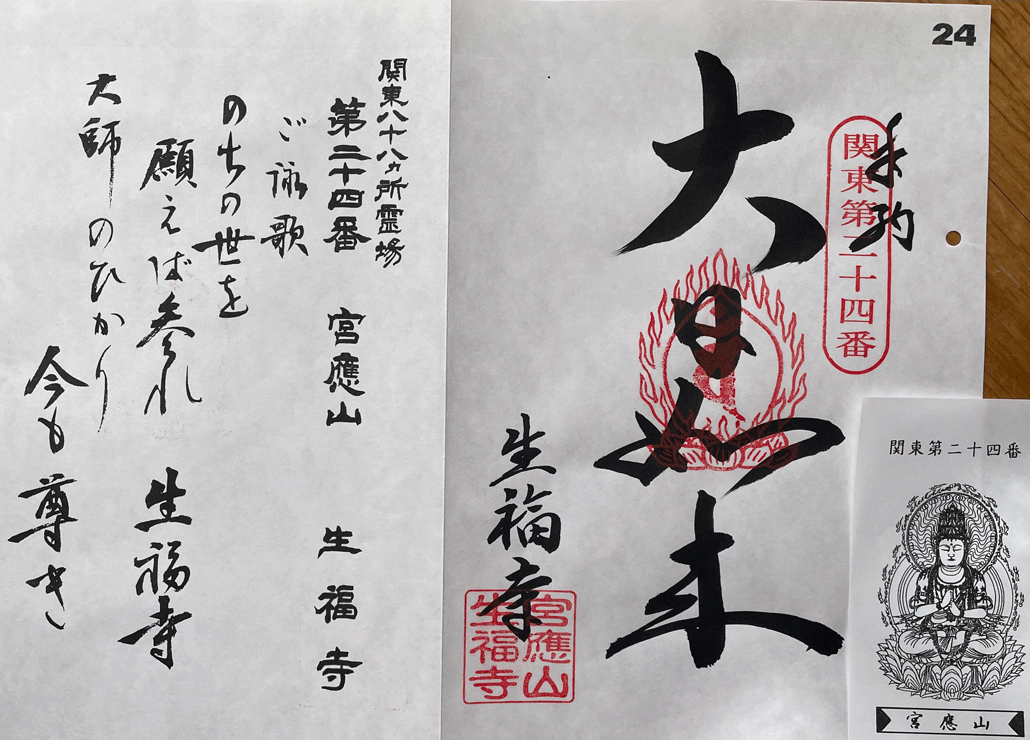 24
奉拝
関東第二十四番
大日如来
生福寺
宮應山
生福寺
関東第二十四番
宮應山
関東八十八ヵ所霊場
第二十四番 宮應山 生福寺
ご詠歌
のちの世を
願えば参れ 生福寺
大師のひかり
今も尊き